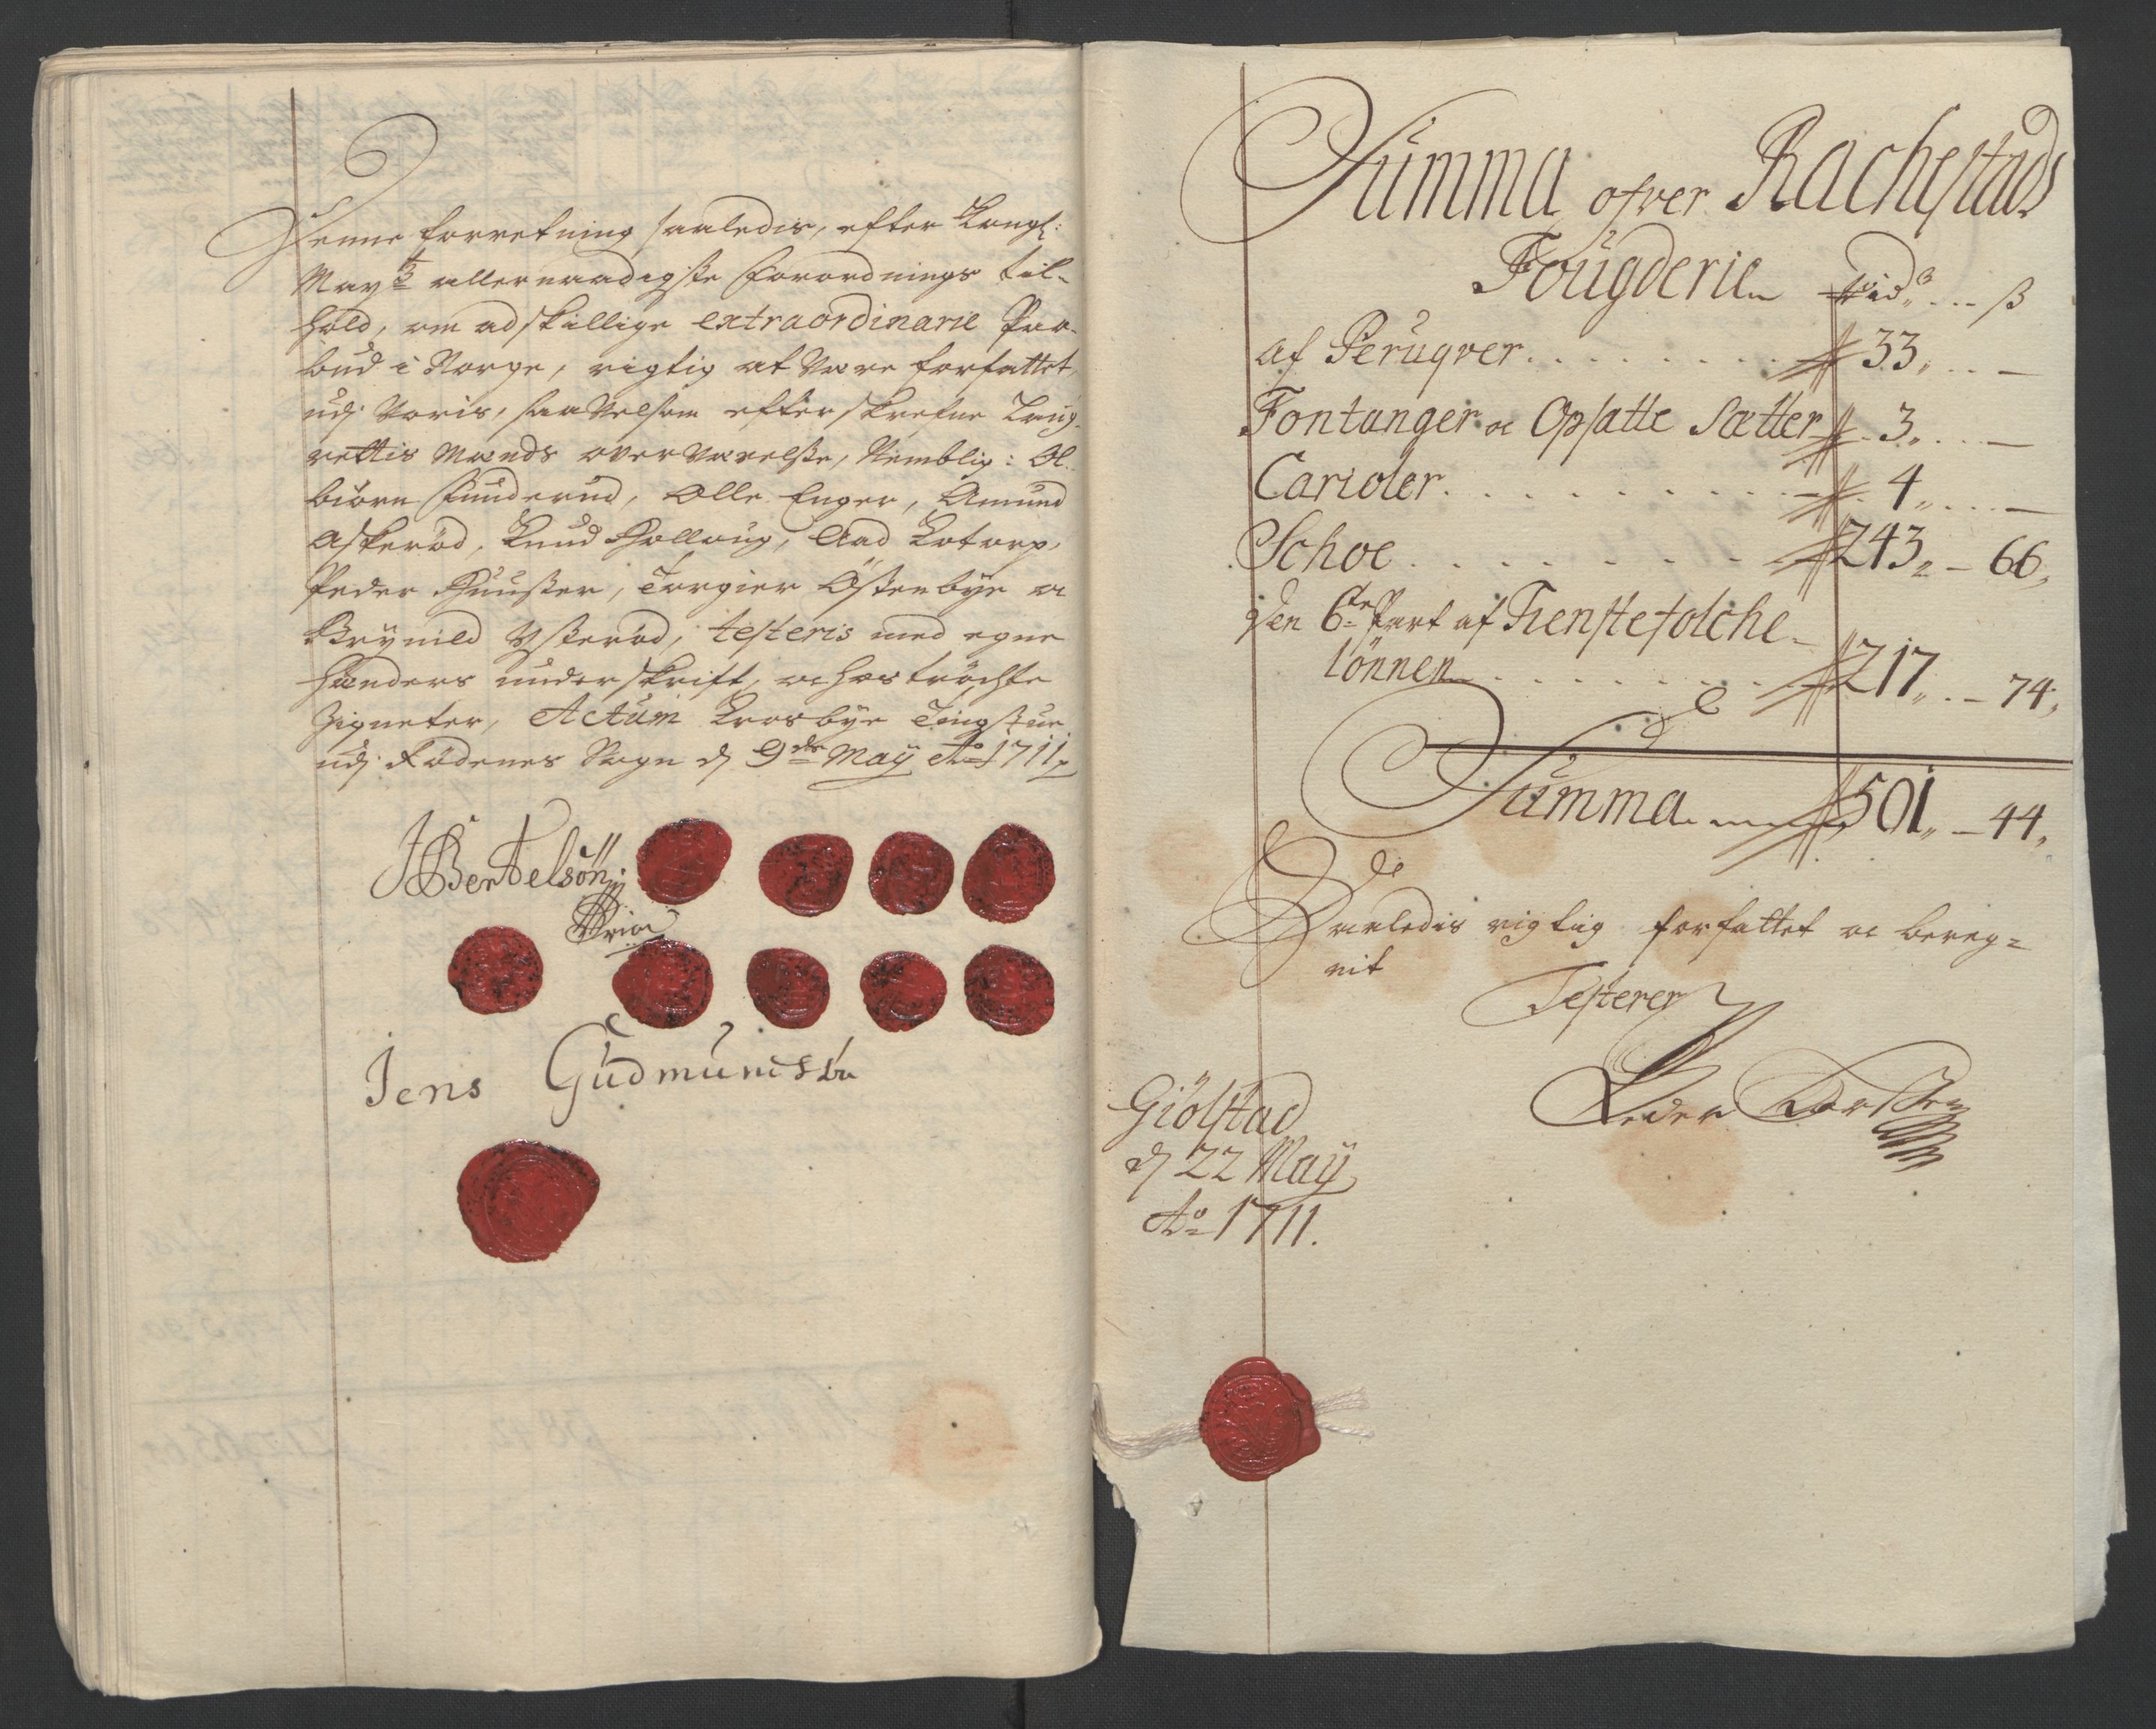 Denne forretning saaledis, efter Kongl:
May:tz allernaadigste forordnings til-
hold, om adskillige extraordinarie Paa-
bud i Norge, rigtig at Være forfattet,
udj Voris, saaVelsom efterskrefne Laug-
rettis Mænds overværelsse, Nemblig: Ol-
biörn Funderud, Olle Enger, Amund
Askeröd, Knud Hallaug, Aad Kotorp,
Peder Huusser, Torgier Östenbÿe oc
Brÿnild Ysteröd, testeris med egne
hænders underskrift, oc hoströchte
Zigneter, Actum Krosbÿe Tingstue
udj Rödenes Sogn d 9de Maÿ Ao 1711
JBertelsön
Jens Gudmundsön
Summa ofver Rachestads
Fougderie Rixdr ... ß
Af Peruqver . . . . . . . . 33 „ . . —
Fontanger oc Opsatte Sætter 3 „ . . —
Carioler . . . . . . . . . . 4 „ . . . —
Schoe . . . . . . . . 243 „ — 66,
den 6te Part af Tienstefolche-
lönnen . . . . . . . . . 217 „ . — 74,
Summa 501 „ — 44,
Saaledis rigtig forfattet oc bereg=
nit
Testerer
Peder Karssen
Giölstad
d 22 Maÿ
Ao 1711.